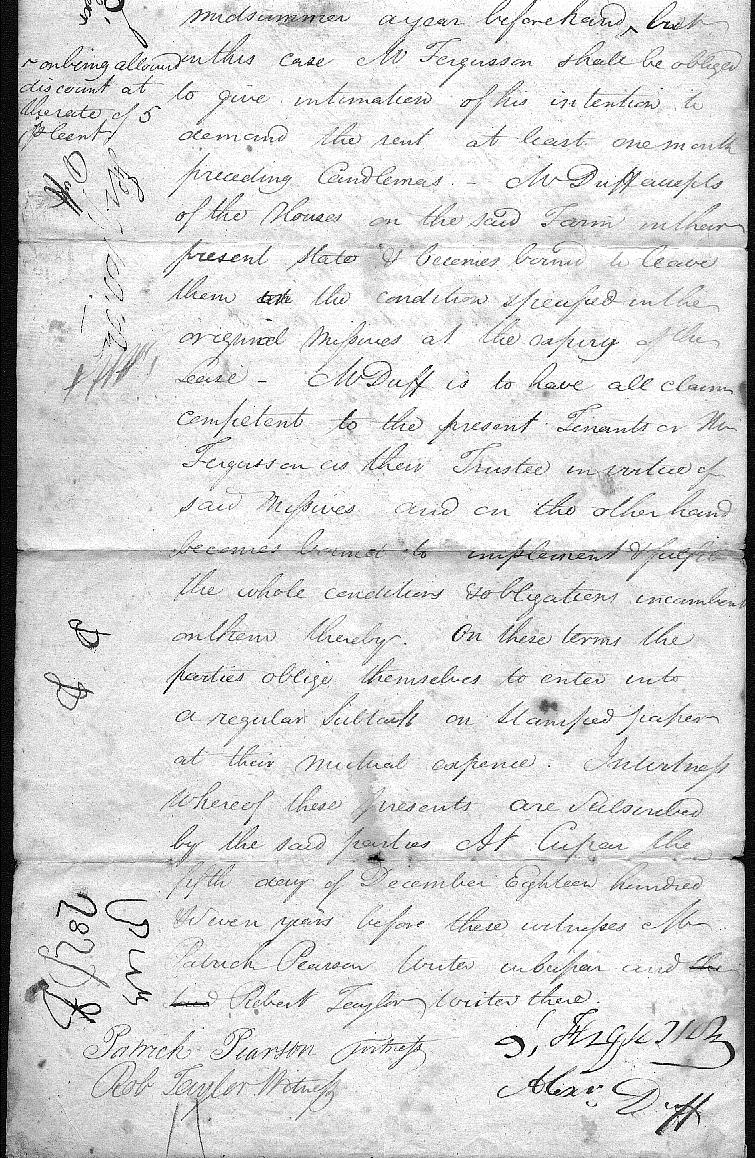 midsummer a year beforehand, ^ but
^ on being allowed
discount at
the rate of 5
p Cent
in this case Mr Fergusson shall be obliged
to give intimation of his intention to
demand the rent at least one month
preceding Candlemas. - Mr Duff accepts
of the Houses on the said Farm in their
present state & becomes bound to leave
them the condition specified in the
original Missives at the expiry of the
Lease - Mr Duff is to have all claim
competent to the present Tenants or Mr
Fergusson as their Trustee in virtue of
said Missives and on the other hand
becomes bound to implement & fulfil
the whole conditions & obligations incumbent
on them thereby. On these terms the
parties oblige themselves to enter into
a regular Subtack on Stamped paper
at their mutual expence. In witness
Whereof these presents are Subscribed
by the said parties At Cupar the
fifth day of December Eighteen hundred
& Seven years before these witnesses Mr
Patrick Pearson Writer in Cupar and the
said Robert Taylor Writer there.
Patrick Pearson witness
Rob Taylor Witness
Fergusson
Alexr Duff
Duff